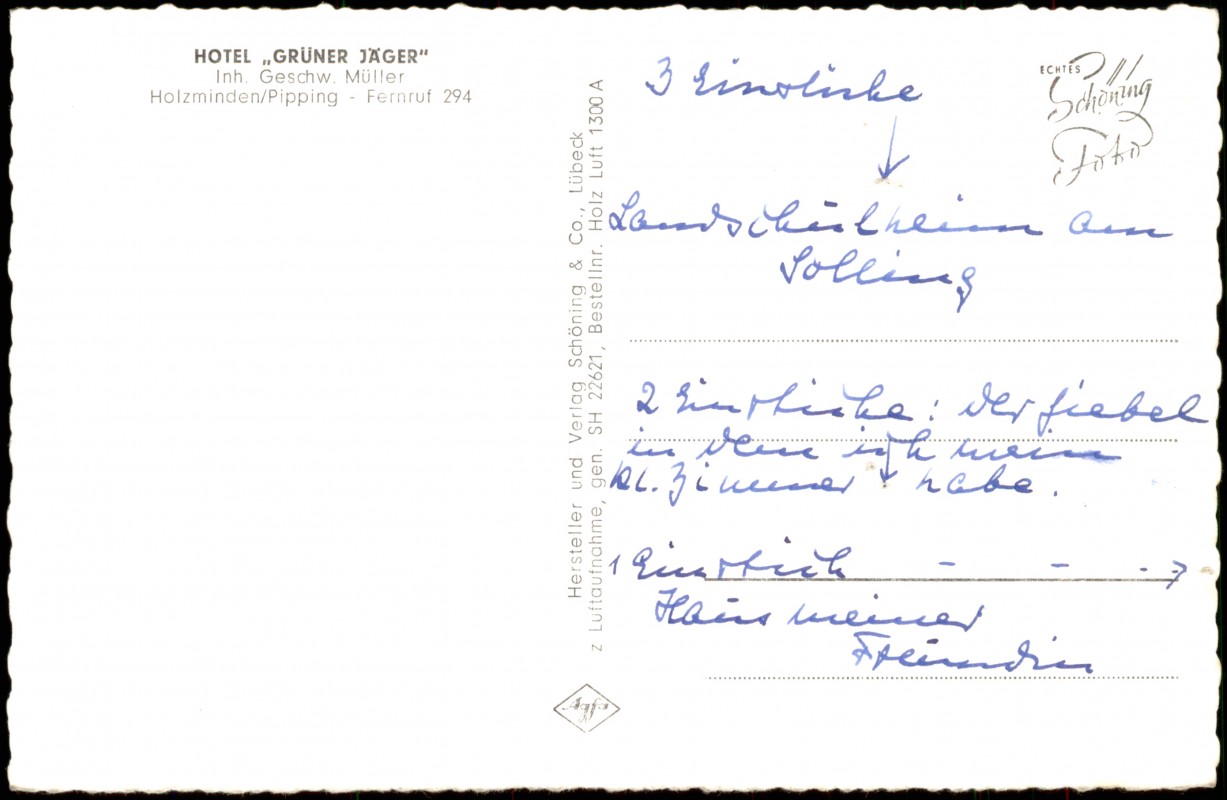 HOTEL „GRÜNER JÄGER“
Inh. Geschw. Müller
Holzminden/Pipping - Fernruf 294
Hersteller und Verlag Schöning & Co., Lübeck
z Luftaufnahme, gen. SH 22621, Bestellnr. Holz Luft 1300 A
Agfa
ECHTES
Schöning
Foto
3 Einstiche
↓
Landschulheim am
Solling
2 Einstiche: der Giebel
in dem ich mein
kl. Zimmer ↓ habe.
1 Einstich - - - →
Haus meiner
Freundin